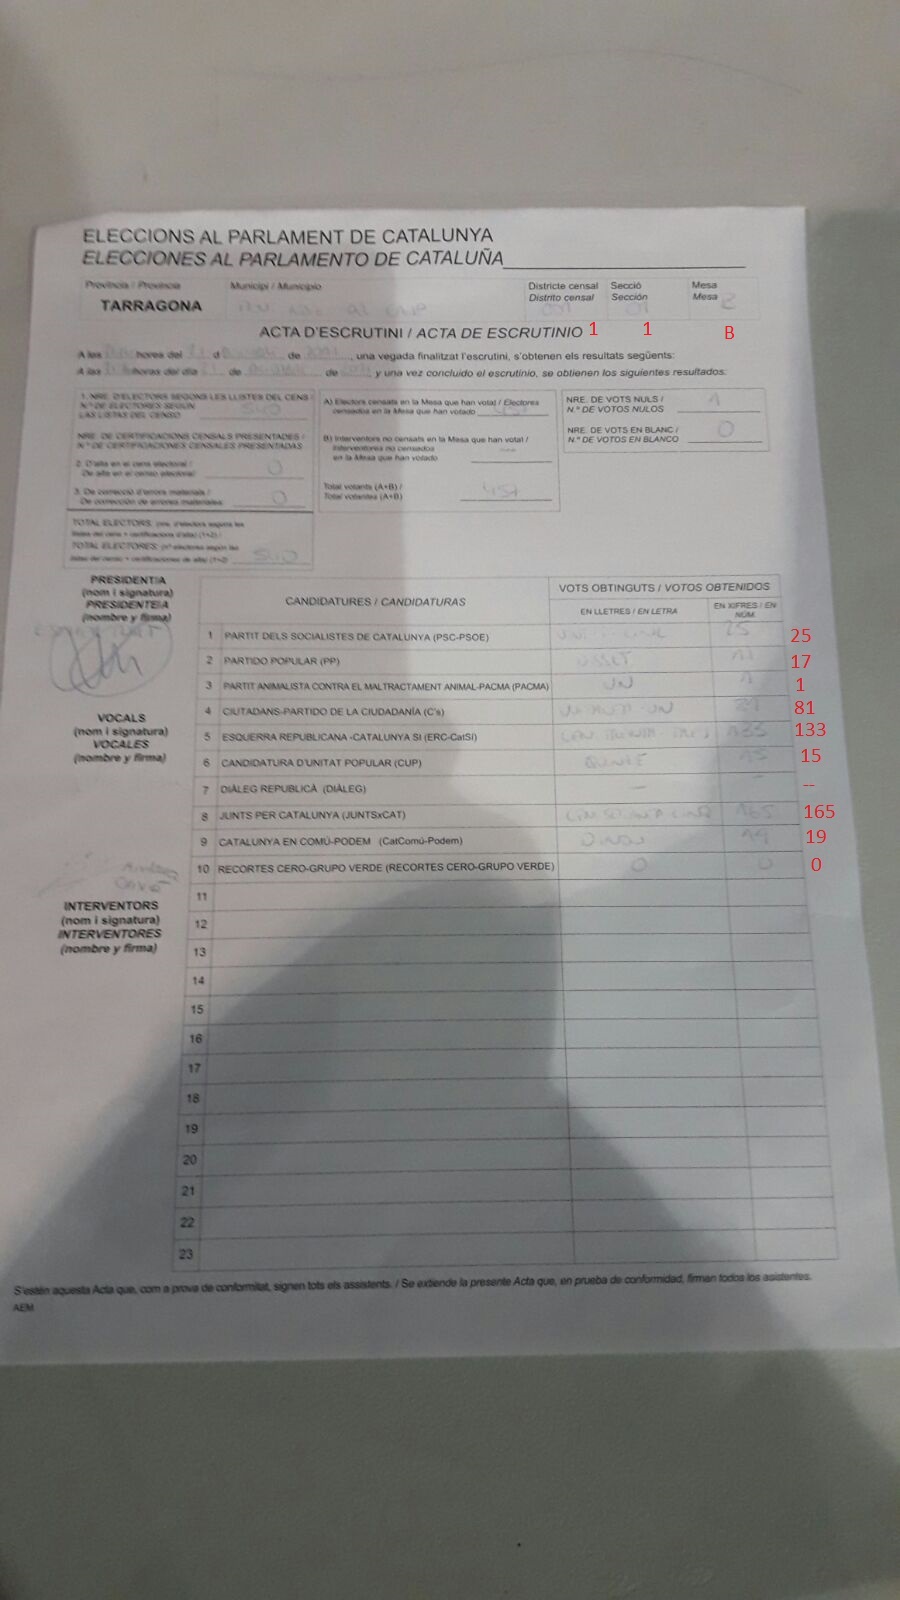 ELECCIONS AL PARLAMENT DE CATALUNYA
ELECCIONES AL PARLAMENTO DE CATALUÑA
Província / Provincia
Municipi / Municipio
Districte censal
Distrito censal
Secció
Sección
Mesa
Mesa
TARRAGONA
001
01
B
ACTA D'ESCRUTINI / ACTA DE ESCRUTINIO
1
1
B
A les hores del de , una vegada finalitzat l'escrutini, s'obtenen els resultats següents:
A las horas del día de de y una vez concluido el escrutinio, se obtienen los siguientes resultados:
1. NRE. D'ELECTORS SEGONS LES LLISTES DEL CENS /
N.º DE ELECTORES SEGÚN
LAS LISTAS DEL CENSO
540
NRE. DE CERTIFICACIONS CENSALS PRESENTADES /
N.º DE CERTIFICACIONES CENSALES PRESENTADAS
2. D'alta en el cens electoral /
De alta en el censo electoral:
0
3. De correcció d'errors materials /
De corrección de errores materiales:
0
TOTAL ELECTORS: (nre. d'electors segons les
llistes del cens + certificacions d'alta) (1+2) /
TOTAL ELECTORES: (n.º electores según las
listas del censo + certificaciones de alta) (1+2)
540
A) Electors censats en la Mesa que han votat / Electores
censados en la Mesa que han votado
457
B) Interventors no censats en la Mesa que han votat /
Interventores no censados
en la Mesa que han votado
Total votants (A+B) /
Total votantes (A+B)
457
NRE. DE VOTS NULS /
N.º DE VOTOS NULOS
1
NRE. DE VOTS EN BLANC /
N.º DE VOTOS EN BLANCO
0
PRESIDENT/A
(nom i signatura)
PRESIDENTE/A
(nombre y firma)
VOCALS
(nom i signatura)
VOCALES
(nombre y firma)
INTERVENTORS
(nom i signatura)
INTERVENTORES
(nombre y firma)
CANDIDATURES / CANDIDATURAS
VOTS OBTINGUTS / VOTOS OBTENIDOS
EN LLETRES / EN LETRA
EN XIFRES / EN NÚM
1 PARTIT DELS SOCIALISTES DE CATALUNYA (PSC-PSOE) VINT-I-CINC 25 25
2 PARTIDO POPULAR (PP) DISSET 17 17
3 PARTIT ANIMALISTA CONTRA EL MALTRACTAMENT ANIMAL-PACMA (PACMA) UN 1 1
4 CIUTADANS-PARTIDO DE LA CIUDADANÍA (C's) 81 81
5 ESQUERRA REPUBLICANA -CATALUNYA SI (ERC-CatSí) 133 133
6 CANDIDATURA D'UNITAT POPULAR (CUP) QUINZE 15 15
7 DIÀLEG REPUBLICÀ (DIÀLEG) — - --
8 JUNTS PER CATALUNYA (JUNTSxCAT) 165 165
9 CATALUNYA EN COMÚ-PODEM (CatComú-Podem) DINOU 19 19
10 RECORTES CERO-GRUPO VERDE (RECORTES CERO-GRUPO VERDE) 0 0 0
11
12
13
14
15
16
17
18
19
20
21
22
23
S'estén aquesta Acta que, com a prova de conformitat, signen tots els assistents. / Se extiende la presente Acta que, en prueba de conformidad, firman todos los asistentes.
AEM